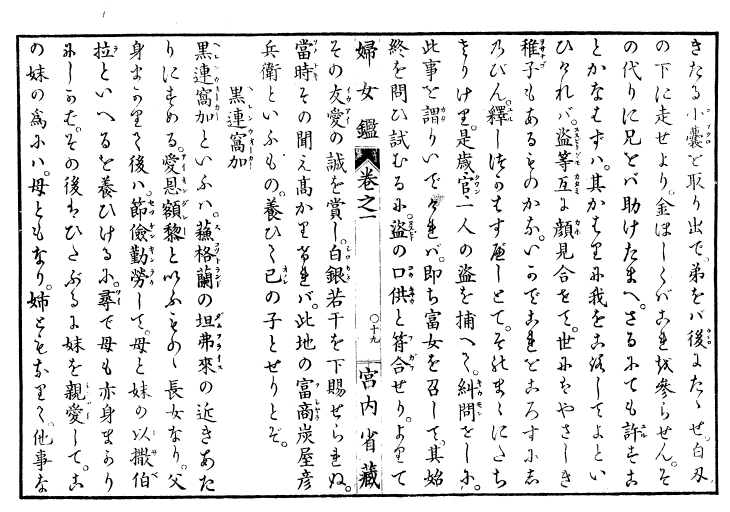 きたる小囊を取り出で。弟をバ後にたゝせ。白刄
の下に走せより。金ほしくバこれを參らせん。そ
の代りに兄をバ助けたまへ。さるにても許すま
とかなもずハ。其かはりに我をころしてよとい
ひければ。盜等互に顏見合せて。世にもやさしき
稚子もあるものかな。いかでこれをころすに忍
びん。釋しつかはすべしとて。そのまゝにたち
さりけり。是歲官一人の盜を捕へて。糾問をしに。
此事を謂りいでければ。即ち富女を召して。其始
終を問ひ試むるに。盜の口供と符合せり。よりて
婦女鑑 卷之一 ○十九 宮內省藏
その友愛の誠を賞し。白銀若干を下賜せられぬ。
當時その聞え高かりければ。此地の富商炭屋彥
兵衛といふもの。養ひて己の子とせりとぞ。
黑連窩加
黑連窩加といふハ。蘇格蘭の坦弗來の近きあた
りにすめる。愛恩額黎と以ふものゝ長女なり。父
身まかりて後ハ。節儉勤勞して。母と妹の以撒伯
拉といへるを養ひけるに。尋で母も亦身まかり
にしかば。その後ハひたぶるに妹を親愛して。こ
の妹の爲にハ。母ともなり。姉ともなりて。他事な